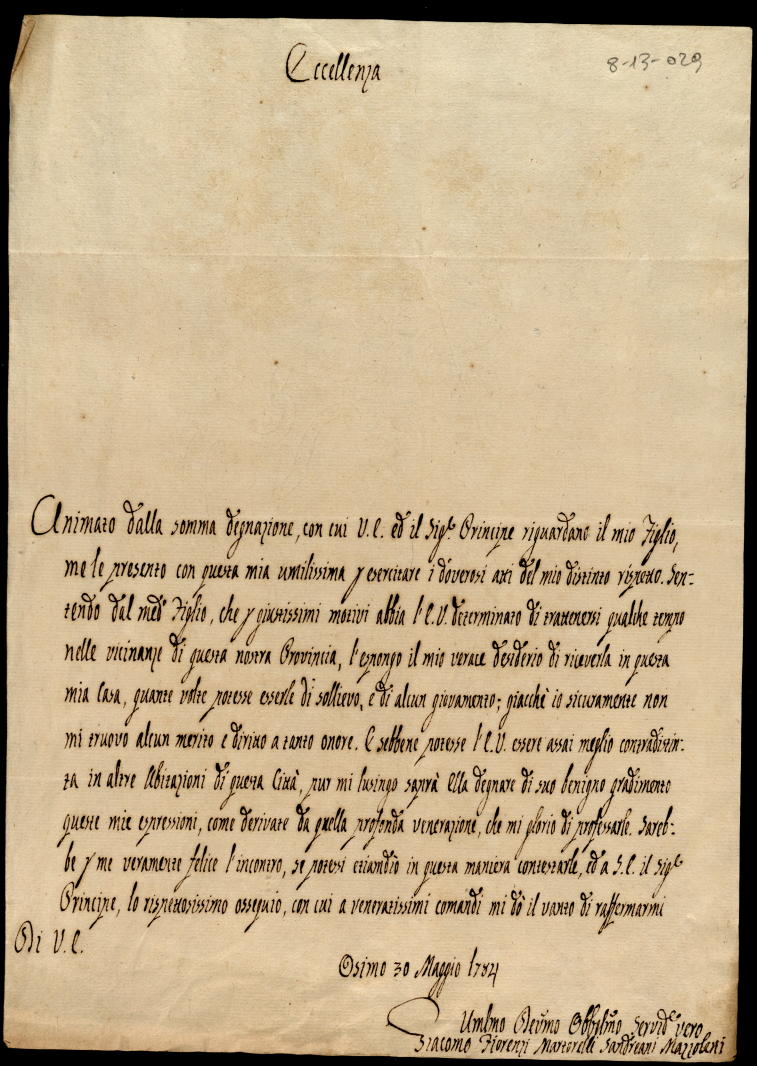 8-13-029
Eccellenza
Animato dalla somma degnazione, con cui V. E. ed il Sig.r Principe riguardano il mio Figlio,
me le presento con questa mia umilissima p esercitare i doverosi atti del mio distinto rispetto. Sen-
tendo dal med.o Figlio, che p giustissimi motivi abbia l'E. V. determinato di trattenersi qualche tempo
nelle vicinanze di questa nostra Provincia, l'espongo il mio verace desiderio di riceverla in questa
mia Casa, quante volte potesse esserle di sollievo, e di alcun giovamento; giacchè io sicuramente non
mi truovo alcun merito e diritto a tanto onore. E sebbene potesse l'E. V. essere assai meglio contradistin-
ta in altre Abitazioni di questa Città, pur mi lusingo saprà Ella degnare di suo benigno gradimento
queste mie espressioni, come derivate da quella profonda venerazione, che mi glorio di professarle. Sareb-
be p me veramente felice l'incontro, se potessi eziandìo in questa maniera contestarle, ed a S. E. il Sig.r
Principe, lo rispettosissimo ossequio, con cui a veneratissimi comandi mi dò il vanto di raffermarmi
Di V. E.
Osimo 30 Maggio 1784
Umilmo Devmo Obblmo Servid.e vero
Giacomo Fiorenzi Martorelli Sandreani Mazzoleni